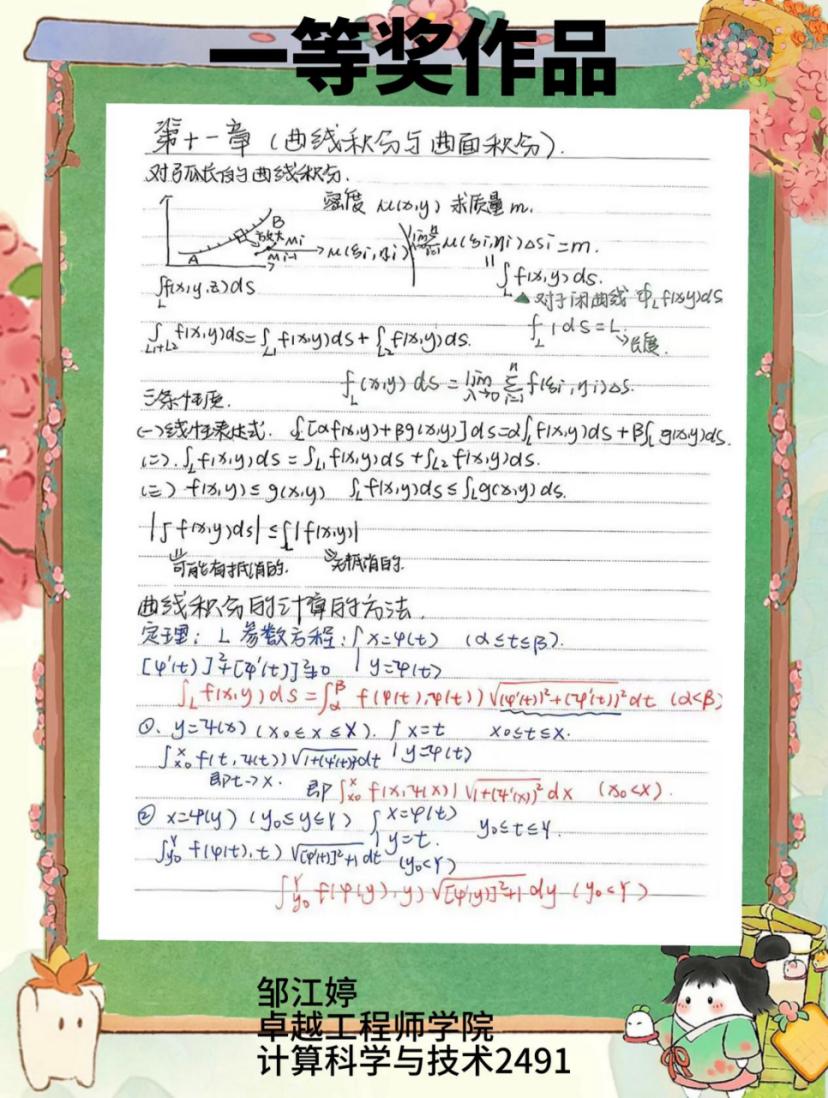 一等奖作品
第十一章（曲线积分与曲面积分）.
对弧长的曲线积分.
密度 μ(x,y) 求质量m.
A B 放大 Mi Mi-1 → μ(ξi,ηi) lim Σ μ(ξi,ηi)Δsi = m.
∫_L f(x,y)ds.
∫_L f(x,y,z)ds
▲ 对于闭曲线 ∮_L f(x,y)ds
∫_L 1ds = L → 长度.
∫_{L1+L2} f(x,y)ds = ∫_{L1} f(x,y)ds + ∫_{L2} f(x,y)ds.
∫_L (x,y)ds = lim_{λ→0} Σ_{i=1}^{n} f(ξi,ηi)Δs.
三条性质.
(一)线性表达式. ∫_L[αf(x,y)+βg(x,y)]ds=α∫_L f(x,y)ds+β∫_L g(x,y)ds.
(二). ∫_L f(x,y)ds = ∫_{L1} f(x,y)ds + ∫_{L2} f(x,y)ds.
(三) f(x,y) ≤ g(x,y) ∫_L f(x,y)ds ≤ ∫_L g(x,y)ds.
|∫f(x,y)ds| ≤ ∫_L|f(x,y)|
可能有抵消的. 无抵消的.
曲线积分的计算的方法.
定理：L 参数方程：{ x=φ(t) (α≤t≤β).
[φ'(t)]²+[ψ'(t)]²≠0 y=ψ(t)
∫_L f(x,y)ds = ∫_α^β f(φ(t),ψ(t))√((φ'(t))²+(ψ'(t))²)dt (α<β)
①. y=ψ(x) (x₀≤x≤X). { x=t x₀≤t≤X.
∫_{x₀}^{X} f(t,ψ(t))√(1+(ψ'(t))²)dt y=ψ(t)
即t→x. 即∫_{x₀}^{X} f(x,ψ(x))√(1+(ψ'(x))²)dx (x₀<X).
② x=φ(y) (y₀≤y≤Y) { x=φ(t) y₀≤t≤Y.
∫_{y₀}^{Y} f(φ(t),t)√([φ'(t)]²+1)dt y=t. (y₀<Y)
∫_{y₀}^{Y} f(φ(y),y)√([φ'(y)]²+1)dy (y₀<Y)
邹江婷
卓越工程师学院
计算科学与技术2491